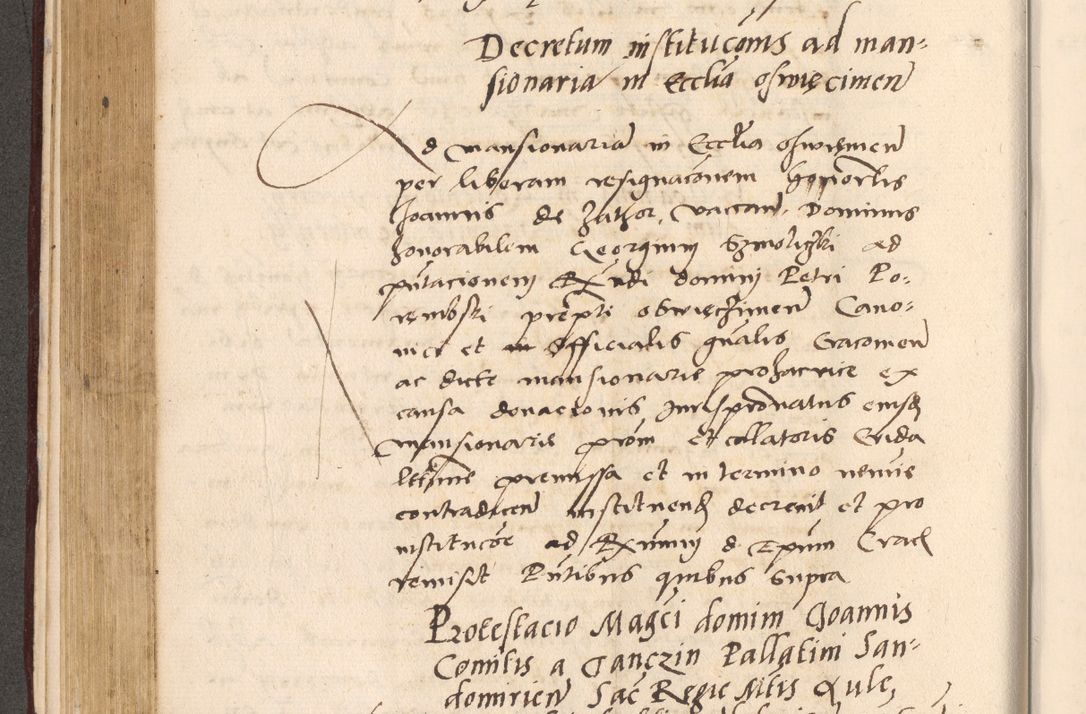 Decretum institucōnis ad man-
sionaria in Ecclīa osvięcimen̄
Ad mansionariā in Ecclīa osvięmen̄
per liberam resignaconem honorbīlis
Joannis de Zathor, vaccan̄, Dominus
honorabilem Georgium Szmolyski ad
pn̄tacionem Rxndi domini Petri Po-
rembski prępti osvięcżimen̄ Cano-
nici et Officialis gn̄alis Cracovien̄
ac dicte mansionarie ex
causa donacionis Jurispronatus eiusd
mansionarie pron̄ et collatoris Crida
letime premissa et in termino nemine
contradicen̄ instituend decrevit et pro
institucōe ad Rxmum d Epum Crac
remisit Pn̄tibus quibus supra
Protestacio Magci domini Joannis
Comitis a Tanczin Pallatini San-
domirien̄ Sac Regie Mtis Aule